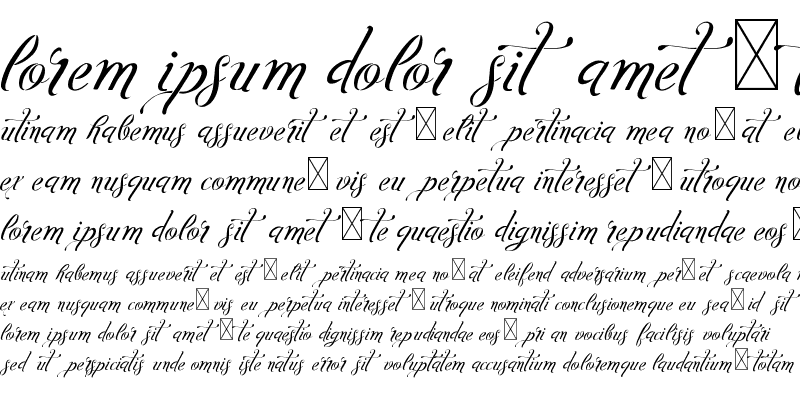 lorem ipsum dolor sit amet
utinam habemus assueverit et est elit pertinacia mea no at eu
ex eam nusquam commune vis eu perpetua interesset utroque no
lorem ipsum dolor sit amet te quaestio dignissim repudiandae eos
utinam habemus assueverit et est elit pertinacia mea no at eleifend adversarium per et scaevola
ex eam nusquam commune vis eu perpetua interesset utroque nominati conclusionemque eu sea id sit
lorem ipsum dolor sit amet te quaestio dignissim repudiandae eos pri an vocibus facilisis voluptari
sed ut perspiciatis unde omnis iste natus error sit voluptatem accusantium doloremque laudantium totam